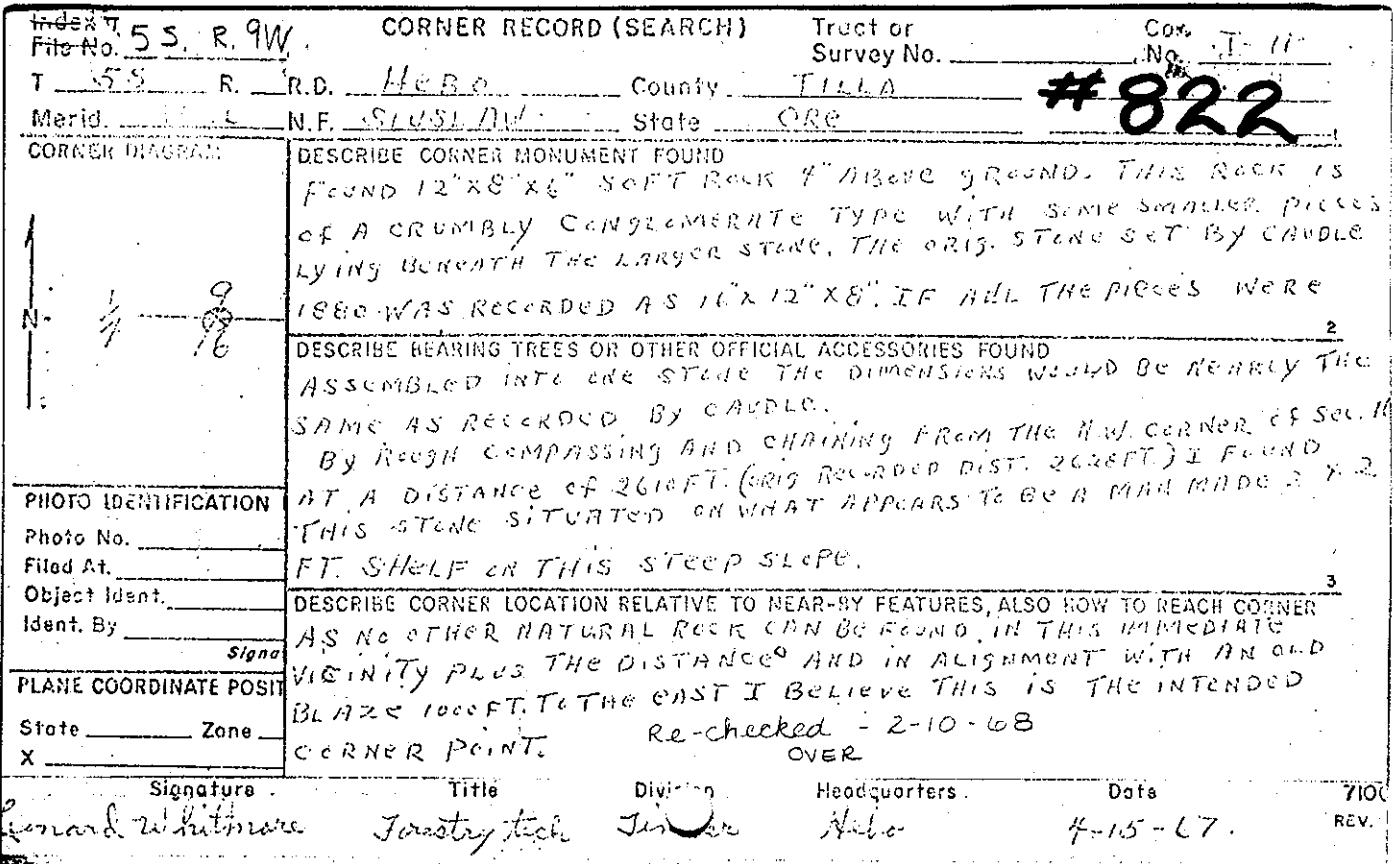 Index T.
File No. 5 S. R. 9W.
CORNER RECORD (SEARCH)
Tract or
Survey No.
Cor.
No. I-11
T 5S R.
R.D. HEBO County TILLA
#822
Merid.
N.F. SIUSLAW State ORE
CORNER DIAGRAM
N
DESCRIBE CORNER MONUMENT FOUND
FOUND 12"X8"X6" SOFT ROCK 4" ABOVE GROUND. THIS ROCK IS
OF A CRUMBLY CONGLOMERATE TYPE WITH SOME SMALLER PIECES
LYING BENEATH THE LARGER STONE. THE ORIG. STONE SET BY CAUDLE
1880 WAS RECORDED AS 16"X12"X8". IF ALL THE PIECES WERE
2
DESCRIBE BEARING TREES OR OTHER OFFICIAL ACCESSORIES FOUND
ASSEMBLED INTO ONE STONE THE DIMENSIONS WOULD BE NEARLY THE
SAME AS RECORDED BY CAUDLE.
BY ROUGH COMPASSING AND CHAINING FROM THE N.W. CORNER OF SEC. 11
AT A DISTANCE OF 2610FT. (ORIG RECORDED DIST. 2628FT.) I FOUND
THIS STONE SITUATED ON WHAT APPEARS TO BE A MAN MADE 2 X 2
FT. SHELF ON THIS STEEP SLOPE.
3
PHOTO IDENTIFICATION
Photo No.
Filed At.
Object Ident.
Ident. By
Signa
DESCRIBE CORNER LOCATION RELATIVE TO NEAR-BY FEATURES, ALSO HOW TO REACH CORNER
AS NO OTHER NATURAL ROCK CAN BE FOUND IN THIS IMMEDIATE
VICINITY PLUS THE DISTANCE AND IN ALIGNMENT WITH AN OLD
BLAZE 1000FT. TO THE EAST I BELIEVE THIS IS THE INTENDED
CORNER POINT. Re-checked - 2-10-68
OVER
PLANE COORDINATE POSIT
State Zone
X
Signature Title Division Headquarters Date 7100
Leonard Whitmore Forestry tech Timber Hebo 4-15-67. REV.